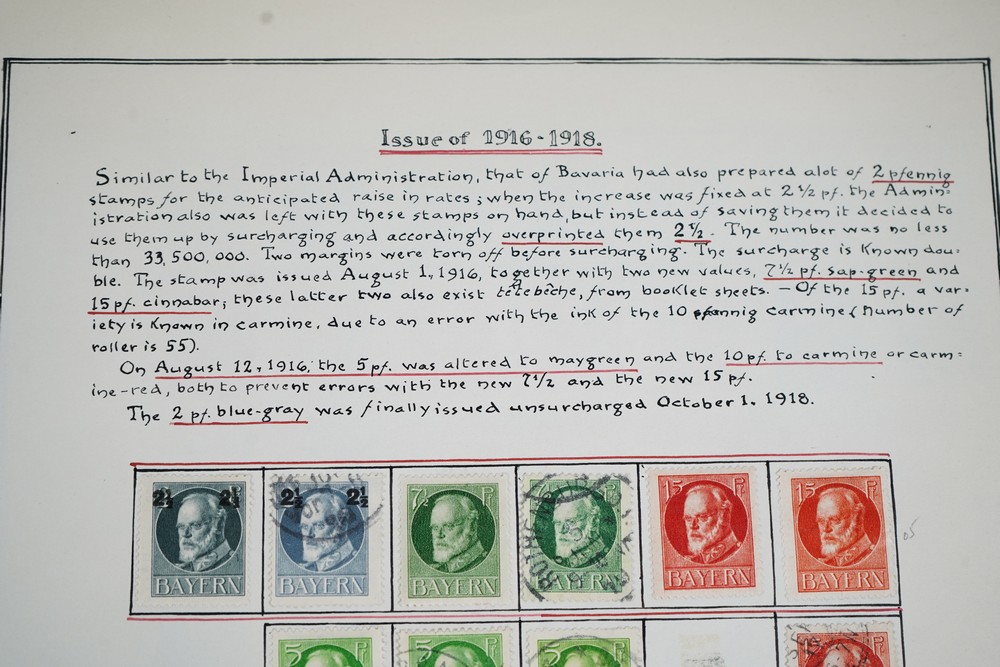 Issue of 1916-1918.
Similar to the Imperial Administration, that of Bavaria had also prepared alot of 2 pfennig
stamps for the anticipated raise in rates; when the increase was fixed at 2 1/2 pf. the Admin=
istration also was left with these stamps on hand, but instead of saving them it decided to
use them up by surcharging and accordingly overprinted them 2 1/2. The number was no less
than 33,500,000. Two margins were torn off before surcharging. The surcharge is known dou=
ble. The stamp was issued August 1, 1916, together with two new values, 7 1/2 pf. sap-green and
15 pf. cinnabar; these latter two also exist têtebêche, from booklet sheets. — Of the 15 pf. a var=
iety is known in carmine, due to an error with the ink of the 10 pfennig carmine (number of
roller is 55).
On August 12, 1916, the 5 pf. was altered to maygreen and the 10 pf. to carmine or carm=
ine-red, both to prevent errors with the new 7 1/2 and the new 15 pf.
The 2 pf. blue-gray was finally issued unsurcharged October 1. 1918.
2½ 2½ 2½ 2½ 7½ Pf 15 Pf 15 Pf
BAYERN BAYERN BAYERN BAYERN BAYERN BAYERN
5 Pf 5 Pf 5 Pf